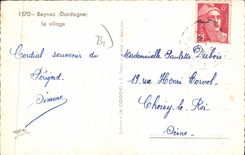 1570 - Beynac (Dordogne)
Le village
24
Cordial souvenir du
Périgord
Simone
Mademoiselle Paulette Dubois
19, rue Henri Corvol
Choisy le Roi
Seine